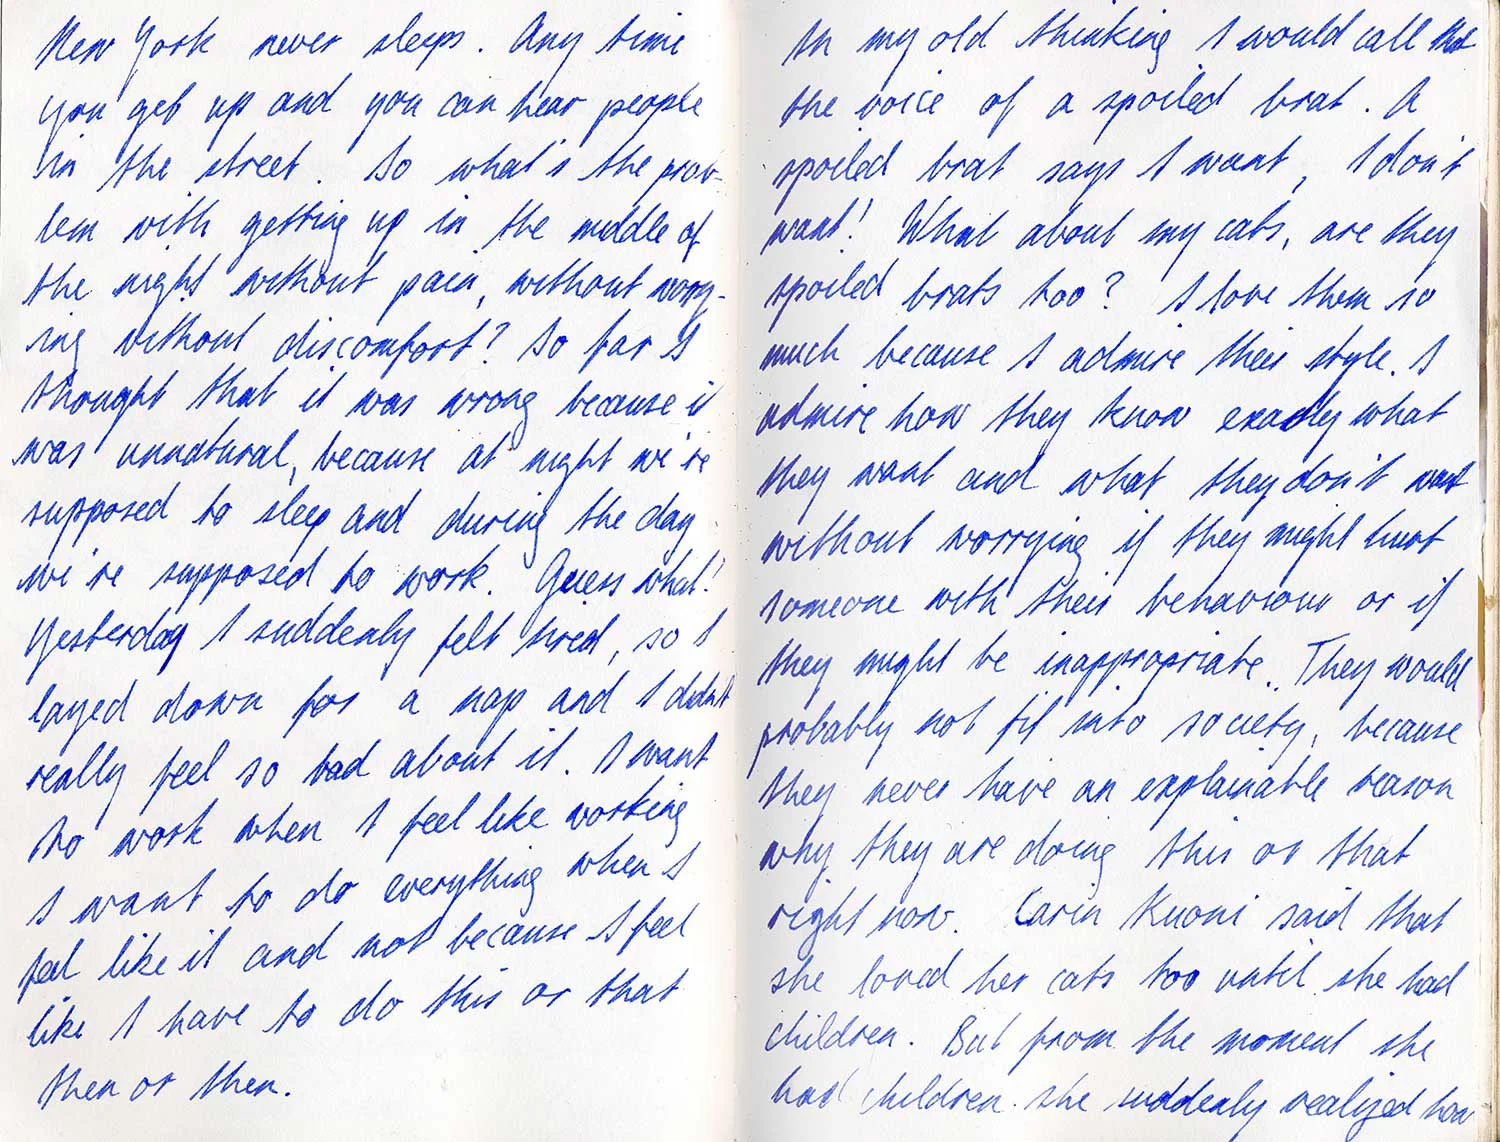 New York never sleeps. Any time
you get up and you can hear people
in the street. So what's the prob-
lem with getting up in the middle of
the night without pain, without worry-
ing without discomfort? So far I
thought that it was wrong because it
was unnatural, because at night we're
supposed to sleep and during the day
we're supposed to work. Guess what!
Yesterday I suddenly felt tired, so I
layed down for a nap and I didn't
really feel so bad about it. I want
to work when I feel like working
I want to do everything when I
feel like it and not because I feel
like I have to do this or that
then or then.
In my old thinking I would call that
the voice of a spoiled brat. A
spoiled brat says I want, I don't
want! What about my cats, are they
spoiled brats too? I love them so
much because I admire their style. I
admire how they know exactly what
they want and what they don't want
without worrying if they might hurt
someone with their behaviour or if
they might be inappropriate. They would
probably not fit into society, because
they never have an explainable reason
why they are doing this or that
right now. Carin Kuoni said that
she loved her cats too until she had
children. But from the moment she
had children she suddenly realized how